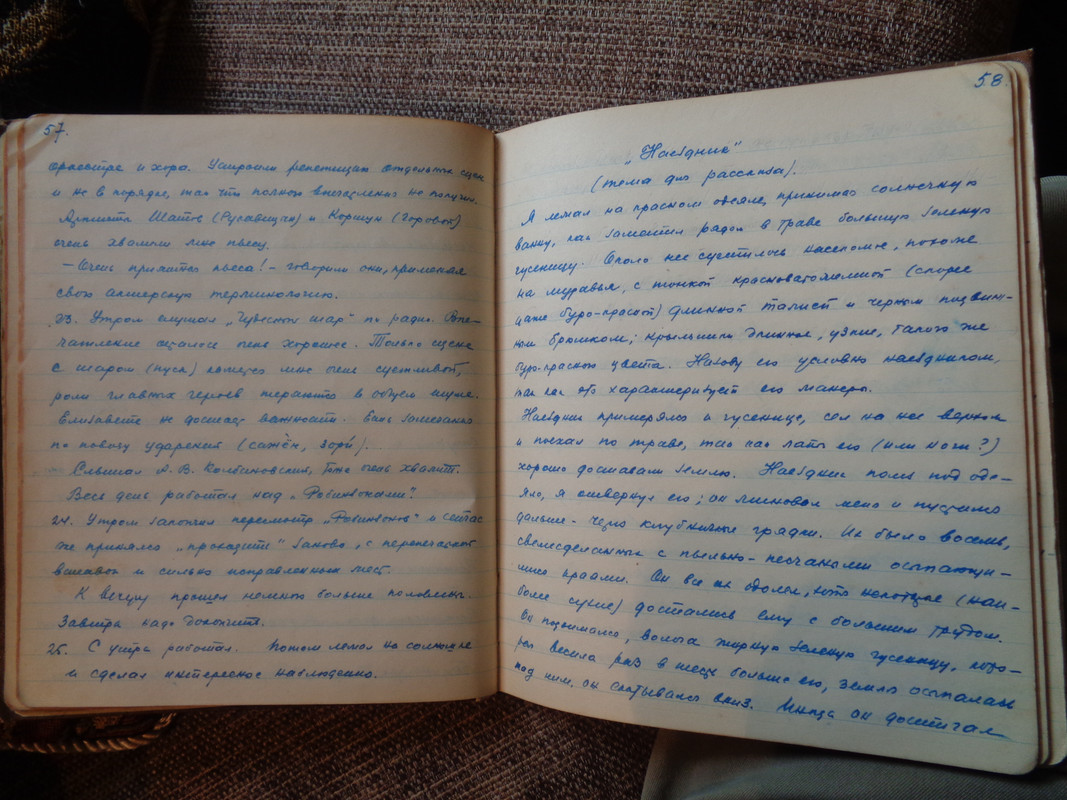 57.
оркестра и хора. Устроили репетицию отдельных сцен
и не в порядке, так что полного впечатления не получил.
Артисты Шатов (Русавицкий) и Корицын (Горовой)
очень хвалили мне пьесу.
— Очень приятная пьеса! — говорили они, применяя
свою актерскую терминологию.
23. Утром слушал „Чудесный шар" по радио. Впе-
чатление осталось очень хорошее. Только сцена
с шаром (пуск) кажется мне очень суетливой,
роли главных героев теряются в общем шуме.
Елизавете не достает важности. Есть замечания
по поводу ударений (сажён, зори́).
Слышал А. В. Колбановский, тоже очень хвалит.
Весь день работал над „Робинзонами".
24. Утром закончил пересмотр „Робинзонов" и сейчас
же принялся „проходить" заново, с перепечаткой
вставок и сильно исправленных мест.
К вечеру прошел немного больше половины.
Завтра надо докончить.
25. С утра работал. Потом лежал на солнышке
и сделал интересное наблюдение.
58.
„Наездник"
(тема для рассказа).
Я лежал на красном одеяле, принимая солнечную
ванну, как заметил рядом в траве большую зеленую
гусеницу. Около нее суетилось насекомое, похожее
на муравья, с тонкой красноватожелтой (скорее
даже буро-красной) длинной талией и черным подвиж-
ным брюшком; крылышки длинные, узкие, такого же
буро-красного цвета. Назову его условно наездником,
так как это характеризует его манеры.
Наездник примерялся к гусенице, сел на нее верхом
и поехал по траве, так как лапы его (или ноги?)
хорошо доставали землю. Наездник полз под оде-
яло, я отвернул его; он миновал меня и пустился
дальше — через клубничные грядки. Их было восемь,
свежесделанных с пыльно-песчаными осыпающи-
мися краями. Он все их одолел, хотя некоторые (наи-
более сухие) достались ему с большим трудом.
Он поднимался, волоча жирную зеленую гусеницу, кото-
рая весила раз в шесть больше его, земля осыпалась
под ним, он скатывался вниз. Иногда он достигал